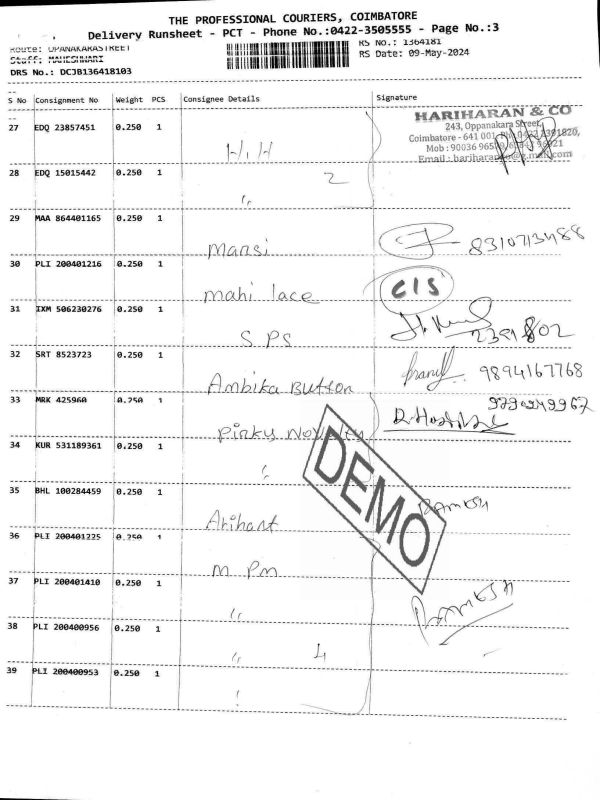 THE PROFESSIONAL COURIERS, COIMBATORE
Delivery Runsheet - PCT - Phone No.:0422-3505555 - Page No.:3
Route: OPANAKARASTREET
RS No.: 1364181
Staff: MAHESHWARI
RS Date: 09-May-2024
DRS No.: DCJB136418103
S No Consignment No Weight PCS Consignee Details Signature
HARIHARAN & CO
243, Oppanakara Street,
Coimbatore - 641 001.
27 EDQ 23857451 0.250 1 H.H
28 EDQ 15015442 0.250 1 " 2
29 MAA 864401165 0.250 1 Mansi 8310713488
30 PLI 200401216 0.250 1 mahi lace CIS
31 IXM 506230276 0.250 1 S.PS 2391802
32 SRT 8523723 0.250 1 Ambika Button 9894167768
33 MRK 425960 0.250 1 Pinky Novelty
34 KUR 531189361 0.250 1 "
35 BHL 100284459 0.250 1 Arihant Ramesh
36 PLI 200401225 0.250 1 M Pm
37 PLI 200401410 0.250 1 " Ramesh
38 PLI 200400956 0.250 1 " 4
39 PLI 200400953 0.250 1 "
DEMO